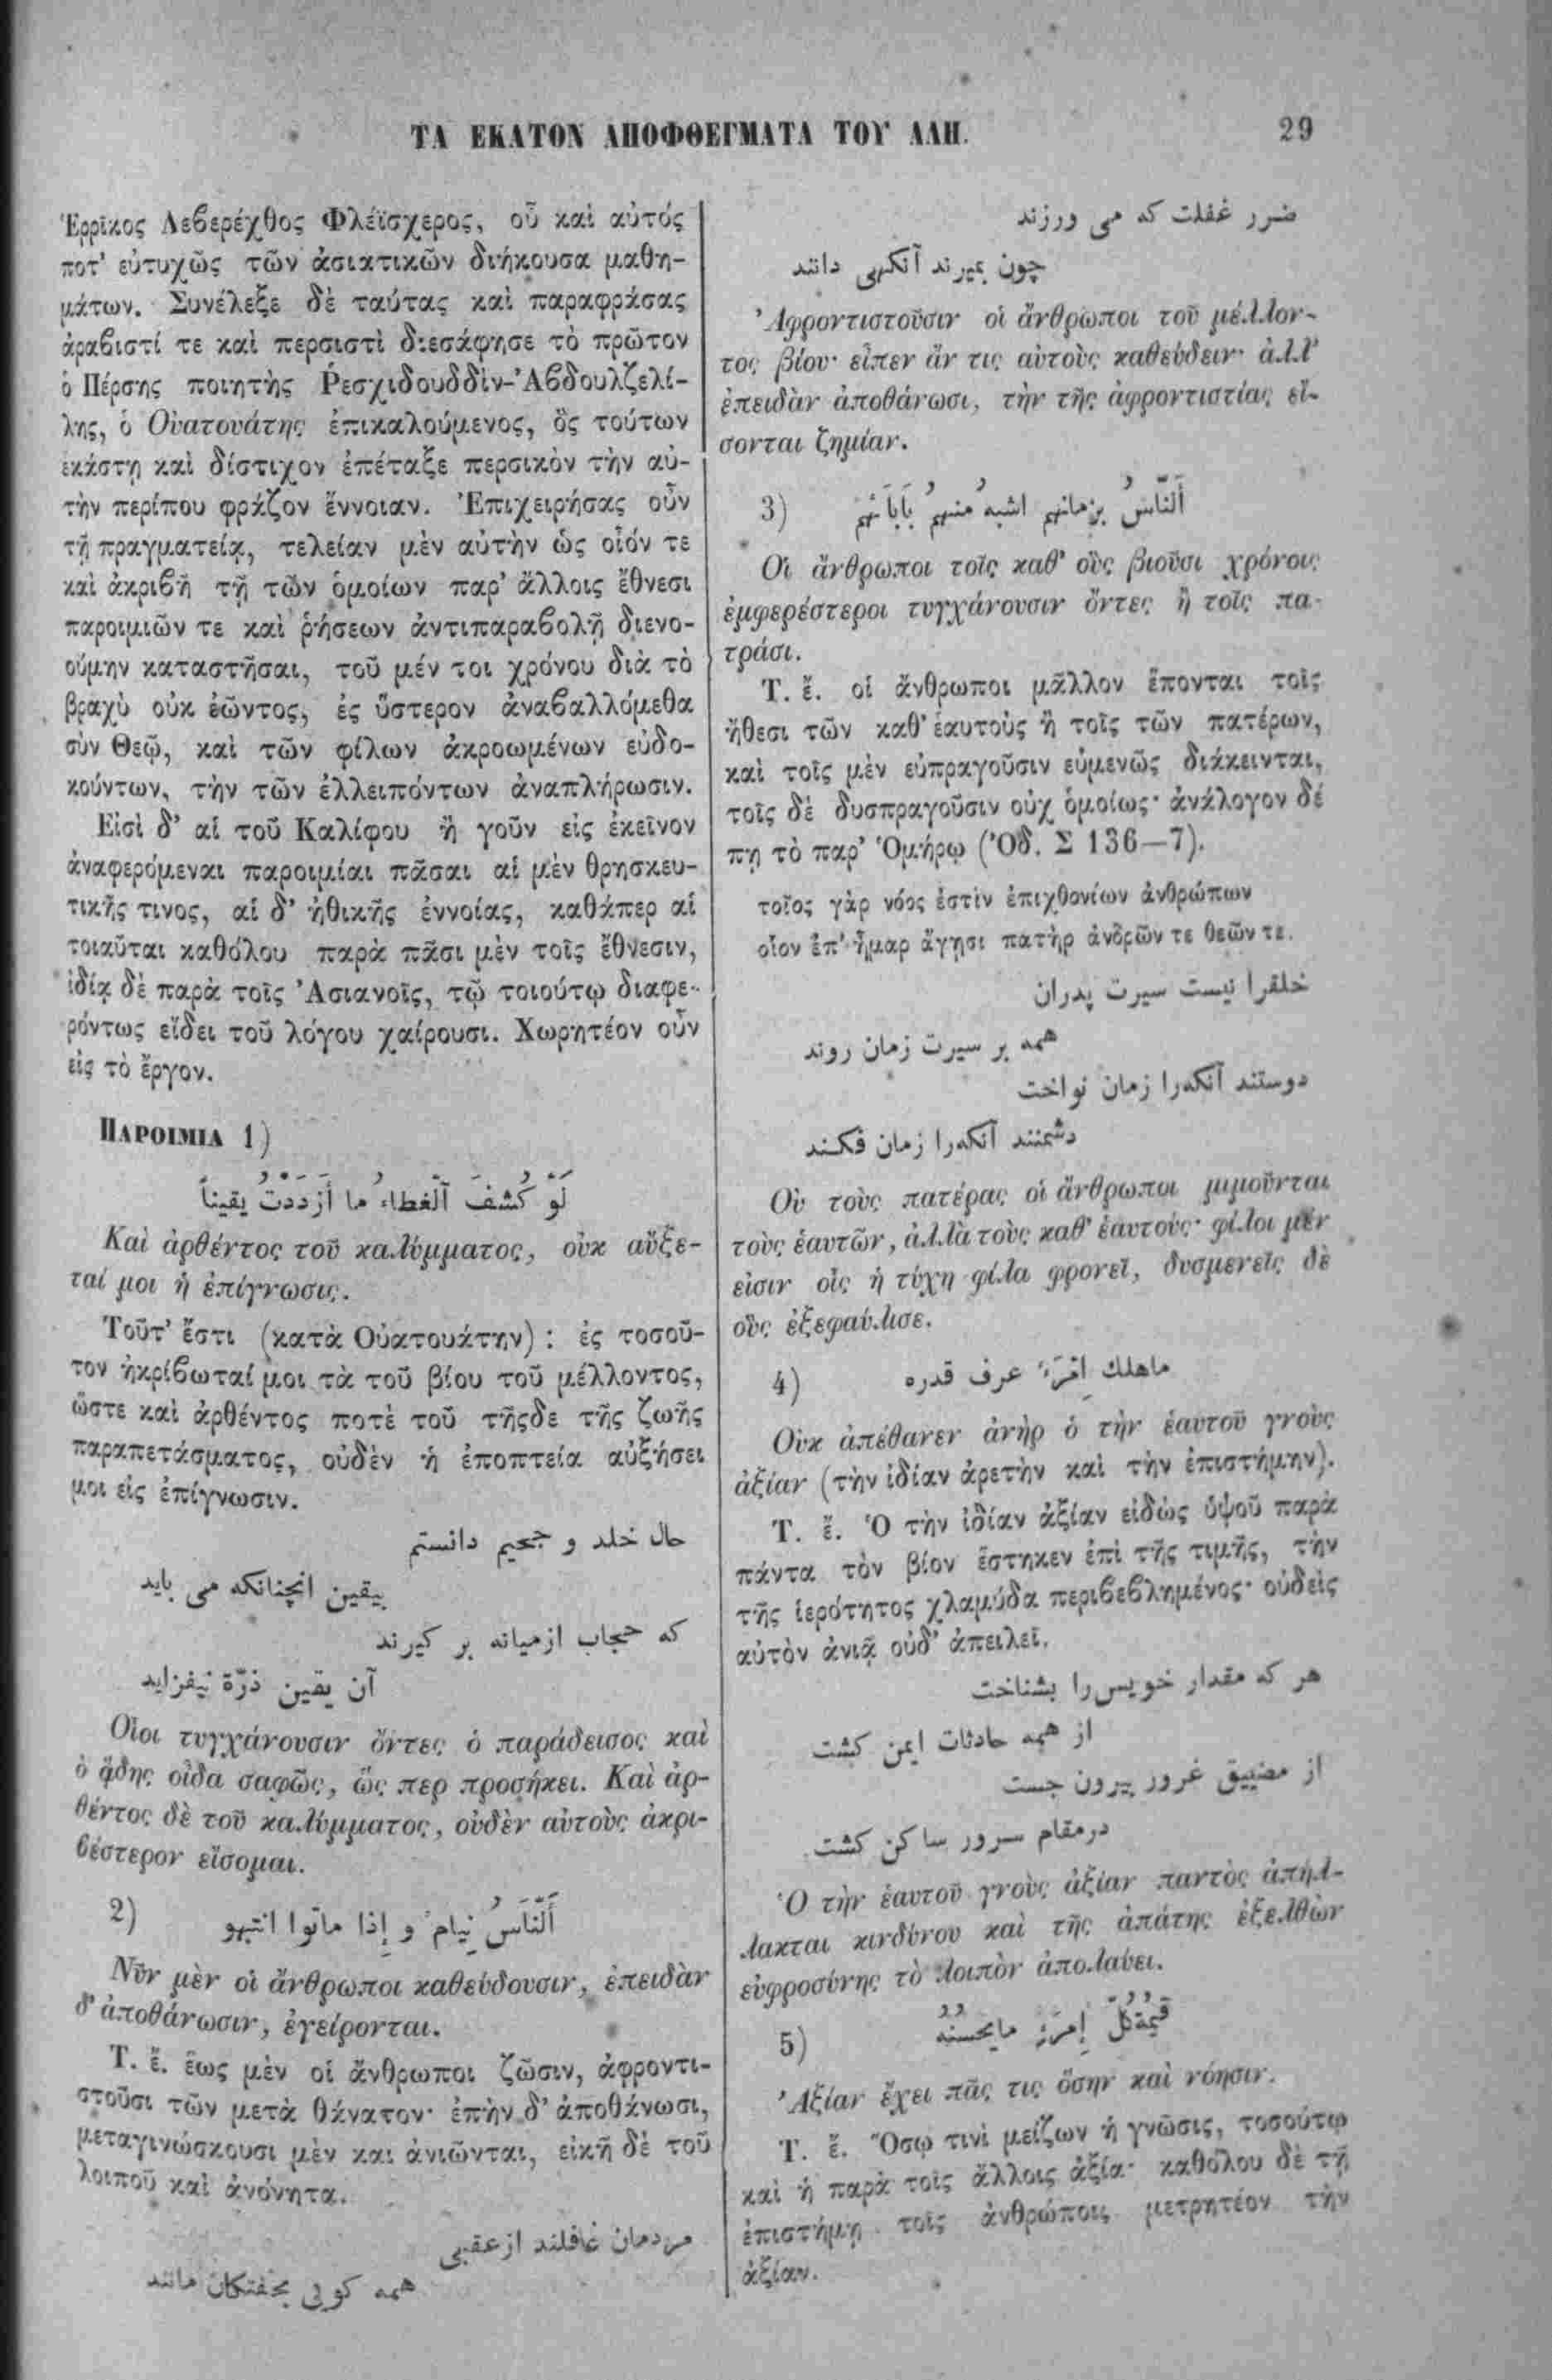 ΤΑ ΕΚΑΤΟΝ ΑΠΟΦΘΕΓΜΑΤΑ ΤΟΥ ΑΛΗ.
29
Ἑρρῖκος Λεβερέχθος Φλέϊσχερος, οὗ καὶ αὐτός
ποτ' εὐτυχῶς τῶν ἀσιατικῶν διήκουσα μαθη-
μάτων. Συνέλεξε δὲ ταύτας καὶ παραφράσας
ἀραβιστί τε καὶ περσιστὶ διεσάφησε τὸ πρῶτον
ὁ Πέρσης ποιητὴς Ῥεσχιδουδδὶν-Ἀβδουλζελί-
λης, ὁ Οὐατουάτης ἐπικαλούμενος, ὃς τούτων
ἑκάστῃ καὶ δίστιχον ἐπέταξε περσικὸν τὴν αὐ-
τὴν περίπου φράζον ἔννοιαν. Ἐπιχειρήσας οὖν
τῇ πραγματείᾳ, τελείαν μὲν αὐτὴν ὡς οἷόν τε
καὶ ἀκριβῆ τῇ τῶν ὁμοίων παρ' ἄλλοις ἔθνεσι
παροιμιῶν τε καὶ ῥήσεων ἀντιπαραβολῇ διενο-
ούμην καταστῆσαι, τοῦ μέν τοι χρόνου διὰ τὸ
βραχὺ οὐκ ἐῶντος, ἐς ὕστερον ἀναβαλλόμεθα
σὺν Θεῷ, καὶ τῶν φίλων ἀκροωμένων εὐδο-
κούντων, τὴν τῶν ἐλλειπόντων ἀναπλήρωσιν.
Εἰσὶ δ' αἱ τοῦ Καλίφου ἢ γοῦν εἰς ἐκεῖνον
ἀναφερόμεναι παροιμίαι πᾶσαι αἱ μὲν θρησκευ-
τικῆς τινος, αἱ δ' ἠθικῆς ἐννοίας, καθάπερ αἱ
τοιαῦται καθόλου παρὰ πᾶσι μὲν τοῖς ἔθνεσιν,
ἰδίᾳ δὲ παρὰ τοῖς Ἀσιανοῖς, τῷ τοιούτῳ διαφε-
ρόντως εἴδει τοῦ λόγου χαίρουσι. Χωρητέον οὖν
εἰς τὸ ἔργον.
ΠΑΡΟΙΜΙΑ 1)
لَوْ كُشفَ ٱلْغطاءُ ما ٱزدَدْتُ يقيناً
Καὶ ἀρθέντος τοῦ καλύμματος, οὐκ αὔξε-
ταί μοι ἡ ἐπίγνωσις.
Τοῦτ' ἔστι (κατὰ Οὐατουάτην) : ἐς τοσοῦ-
τον ἠκρίβωταί μοι τὰ τοῦ βίου τοῦ μέλλοντος,
ὥστε καὶ ἀρθέντος ποτὲ τοῦ τῆςδε τῆς ζωῆς
παραπετάσματος, οὐδὲν ἡ ἐποπτεία αὐξήσει
μοι εἰς ἐπίγνωσιν.
حال خلد و جحيم دانستم
بيقين انچنانكه می بايد
كه حجاب ازميانه بر كيرند
آن يقين ذرّة نيفزايد
Οἷοι τυγχάνουσιν ὄντες ὁ παράδεισος καὶ
ὁ ᾅδης οἶδα σαφῶς, ὥς περ προσήκει. Καὶ ἀρ-
θέντος δὲ τοῦ καλύμματος, οὐδὲν αὐτοὺς ἀκρι-
βέστερον εἴσομαι.
2) أَلنَّاسُ نِيام و إِذا ماتوا انتبهو
Νῦν μὲν οἱ ἄνθρωποι καθεύδουσιν, ἐπειδὰν
δ' ἀποθάνωσιν, ἐγείρονται.
Τ. ἔ. ἕως μὲν οἱ ἄνθρωποι ζῶσιν, ἀφροντι-
στοῦσι τῶν μετὰ θάνατον· ἐπὴν δ' ἀποθάνωσι,
μεταγινώσκουσι μὲν και ἀνιῶνται, εἰκῆ δὲ τοῦ
λοιποῦ καὶ ἀνόνητα.
مردمان غافلند ازعقبی
همه كويی بخفتكان مانند
ضرر غفلت كه می ورزند
چون بميرند آنكهی دانند
Ἀφροντιστοῦσιν οἱ ἄνθρωποι τοῦ μέλλον-
τος βίου· εἶπεν ἄν τις αὐτοὺς καθεύδειν· ἀλλ'
ἐπειδὰν ἀποθάνωσι, τὴν τῆς ἀφροντιστίας εἴ-
σονται ζημίαν.
3) أَلنَّاسُ بزمانهم اشبهُ منهُم بَآبَائهُم
Οἱ ἄνθρωποι τοῖς καθ' οὓς βιοῦσι χρόνοις
ἐμφερέστεροι τυγχάνουσιν ὄντες ἢ τοῖς πα-
τράσι.
Τ. ἔ. οἱ ἄνθρωποι μᾶλλον ἕπονται τοῖς
ἤθεσι τῶν καθ' ἑαυτοὺς ἢ τοῖς τῶν πατέρων,
καὶ τοῖς μὲν εὐπραγοῦσιν εὐμενῶς διάκεινται,
τοῖς δὲ δυσπραγοῦσιν οὐχ ὁμοίως· ἀνάλογον δέ
πῃ τὸ παρ' Ὁμήρῳ (Ὀδ. Σ 136—7).
τοῖος γὰρ νόος ἐστὶν ἐπιχθονίων ἀνθρώπων
οἷον ἐπ' ἦμαρ ἄγῃσι πατὴρ ἀνδρῶν τε θεῶν τε.
خلقرا نيست سيرت پدران
همه بر سيرت زمان روند
دوستند آنكه‌را زمان نواخت
دشمنند آنكه‌را زمان فكند
Οὐ τοὺς πατέρας οἱ ἄνθρωποι μιμοῦνται
τοὺς ἑαυτῶν, ἀλλὰ τοὺς καθ' ἑαυτούς· φίλοι μέν
εἰσιν οἷς ἡ τύχη φίλα φρονεῖ, δυσμενεῖς δὲ
οὓς ἐξεφαύλισε.
4) ماهلك اِمْرَءٌ عرف قدره
Οὐκ ἀπέθανεν ἀνὴρ ὁ τὴν ἑαυτοῦ γνοὺς
ἀξίαν (τὴν ἰδίαν ἀρετὴν καὶ τὴν ἐπιστήμην).
Τ. ἔ. Ὁ τὴν ἰδίαν ἀξίαν εἰδὼς ὑψοῦ παρὰ
πάντα τὸν βίον ἕστηκεν ἐπὶ τῆς τιμῆς, τὴν
τῆς ἱερότητος χλαμύδα περιβεβλημένος· οὐδεὶς
αὐτὸν ἀνιᾷ οὐδ' ἀπειλεῖ.
هر كه مقدار خويس‌را بشناخت
از همه حادثات ايمن كشت
از مضييق غرور بيرون جست
درمقام سرور ساكن كشت
Ὁ τὴν ἑαυτοῦ γνοὺς ἀξίαν παντὸς ἀπήλ-
λακται κινδύνου καὶ τῆς ἀπάτης ἐξελθὼν
εὐφροσύνης τὸ λοιπὸν ἀπολαύει.
5) قيمَةُ كُلّ إِمرَءٍ مايحسنُهُ
Ἀξίαν ἔχει πᾶς τις ὅσην καὶ νόησιν.
Τ. ἔ. Ὅσῳ τινὶ μείζων ἡ γνῶσις, τοσούτῳ
καὶ ἡ παρὰ τοῖς ἄλλοις ἀξία· καθόλου δὲ τῇ
ἐπιστήμῃ τοῖς ἀνθρώποις μετρητέον τὴν
ἀξίαν.